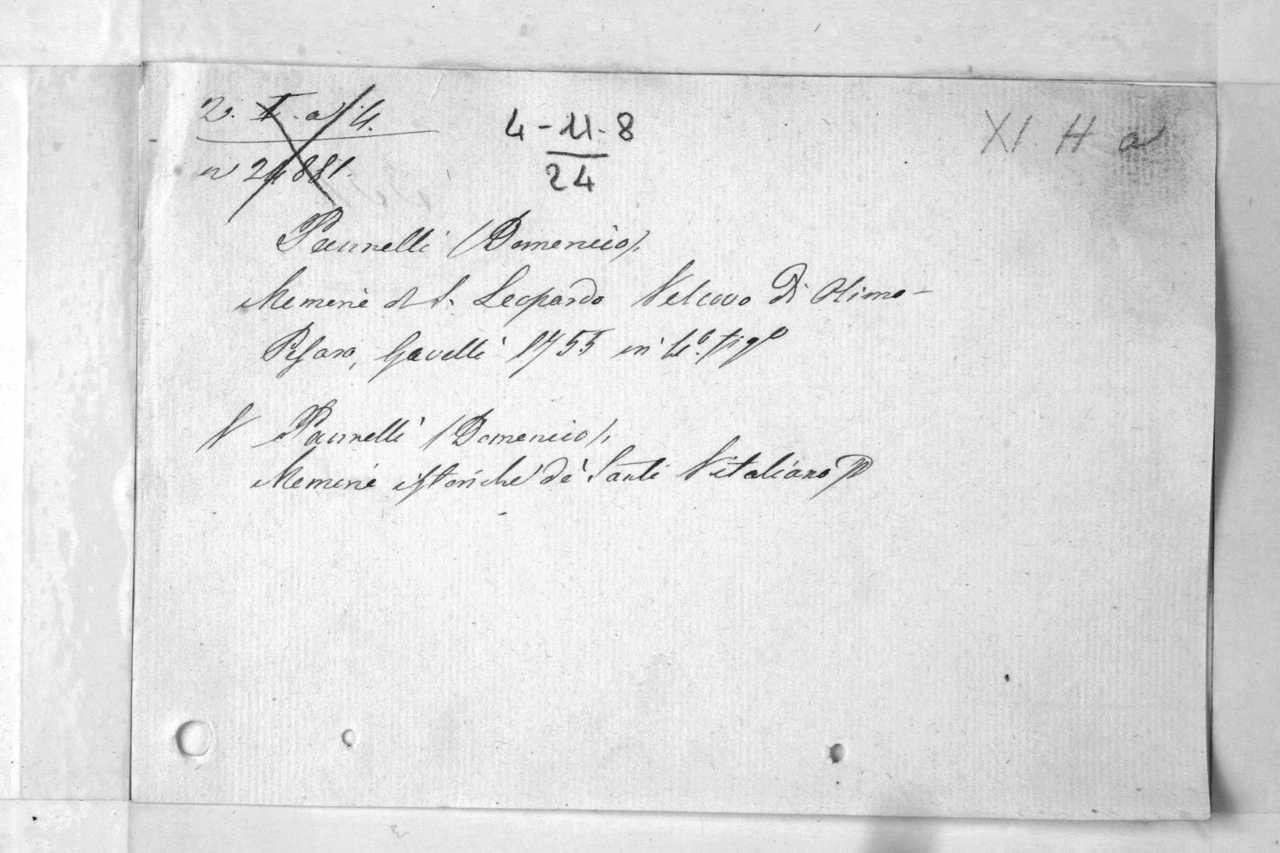 2. I. a. 4.
n 24881.
4-11-8
24
XI H a
Pannelli (Domenico).
Memorie di S. Leopardo Vescovo di Osimo -
Pesaro, Gavelli 1755 in 4.° fig.°
V Pannelli (Domenico).
Memorie istoriche de' Santi Vitaliano